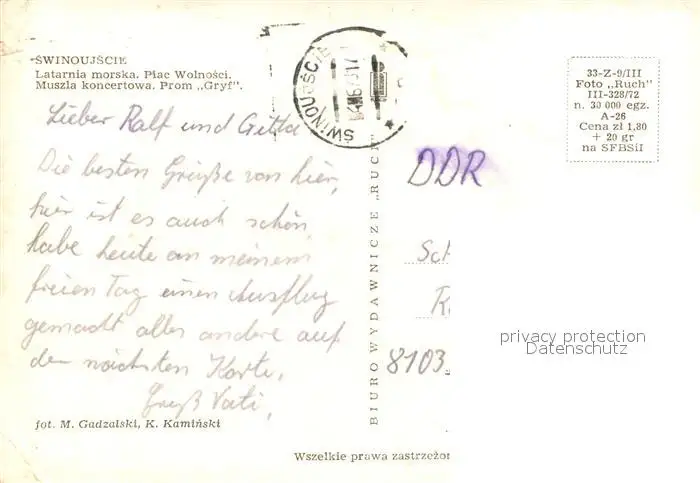 ŚWINOUJŚCIE
Latarnia morska. Plac Wolności.
Muszla koncertowa. Prom „Gryf”.
ŚWINOUJŚCIE
33-Z-9/III
Foto „Ruch”
III-328/72
n. 30 000 egz.
A-26
Cena zł 1,80
+ 20 gr
na SFBSiI
Lieber Ralf und Gitta
Die besten Grüße von hier,
hier ist es auch schön,
habe heute an meinem
freien Tag einen Ausflug
gemacht alles andere auf
der nächsten Karte.
Gruß Vati.
DDR
Sch
8103
privacy protection
Datenschutz
BIURO WYDAWNICZE „RUCH”
fot. M. Gadzalski, K. Kamiński
Wszelkie prawa zastrzeżon